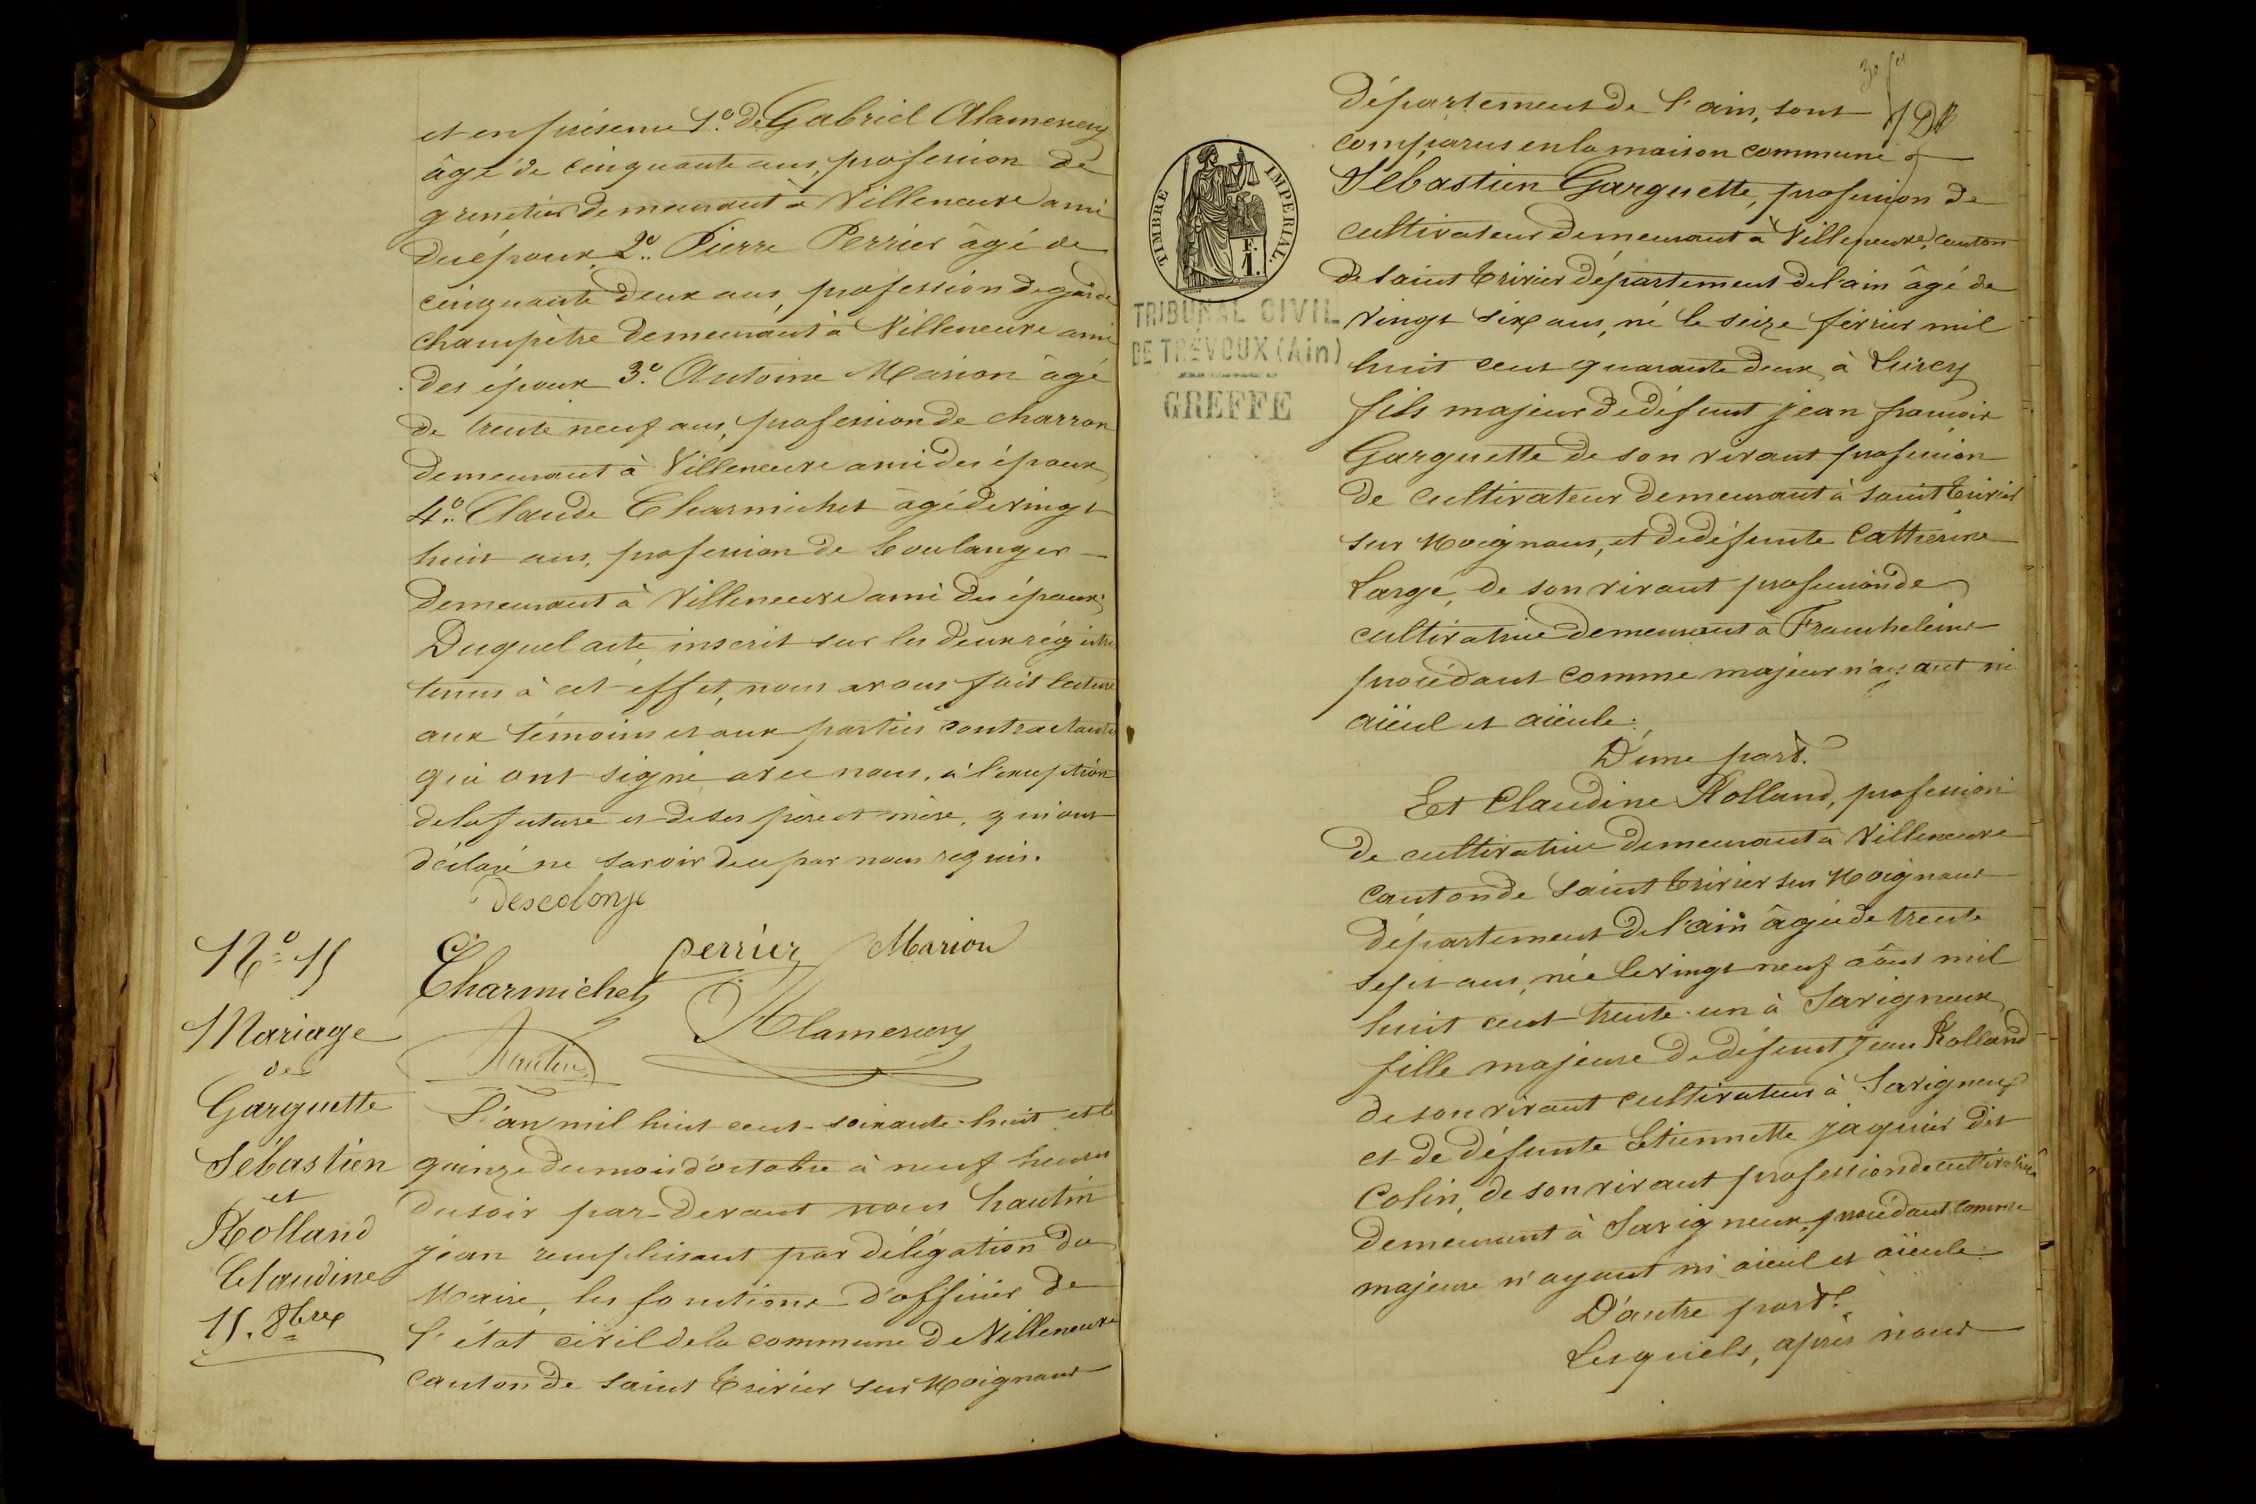 et en présence 1.º de Gabriel Alamercery
âgé de cinquante ans, profession de
grenetier demeurant à Villeneuve ami
des époux, 2º. Pierre Perrier âgé de
cinquante deux ans, profession de garde
champêtre demeurant à Villeneuve ami
des époux 3º. Antoine Marion âgé
de trente neuf ans, profession de charron
demeurant à Villeneuve ami des époux
4º. Claude Charmichet âgé de vingt
huit ans, profession de boulanger
demeurant à Villeneuve ami des époux;
Duquel acte, inscrit sur les deux régistres
tenus à cet effet, nous avons fait lecture
aux témoins et aux parties contractantes
qui ont signé avec nous, à l'exception
de la future et de ses père et mère, qui ont
déclaré ne savoir de ce par nous requis.
Descolonge
perrier Marion
Charmichet
Alamercery
hautin
Nº. 15
Mariage
de
Garguette
Sébastien
et
Rolland
Claudine
15. 8bre
L'an mil huit cent soixante-huit et le
quinze du mois d'octobre à neuf heures
du soir par-devant nous hautin
jean remplissant par délégation du
Maire, les fonctions d'officier de
l'état civil de la commune de Villeneuve
canton de saint trivier sur Moignans
TIMBRE IMPERIAL
F.
1.
TRIBUNAL CIVIL
DE TRÉVOUX (Ain)
GREFFE
département de l'ain, sont
comparus en la maison commune
Sébastien Garguette, profession de
cultivateur demeurant à Villeneuve, canton
de saint trivier département de l'ain âgé de
vingt six ans, né le seize février mil
huit cent quarante deux, à Lurcy
fils majeur de défunt jean françois
Garguette de son vivant profession
de cultivateur demeurant à saint trivier
sur Moignans, et de défunte Catherine
Large, de son vivant profession de
cultivatrice demeurant à Francheleins
procédant comme majeur n'ayant ni
aïeul et aïeule.
D'une part.
Et Claudine Rolland, profession
de cultivatrice demeurant à Villeneuve
canton de saint trivier sur Moignans
département de l'ain âgée de trente
sept ans, née le vingt neuf août mil
huit cent trente-un à Savigneux
fille majeure de défunt jean Rolland
de son vivant cultivateur à Savigneux
et de défunte Etiennette jaquier dit
Colin, de son vivant profession de cultivatrice
demeurant à Savigneux, procédant comme
majeure n'ayant ni aïeul et aïeule.
D'autre part.
Lesquels, après nous